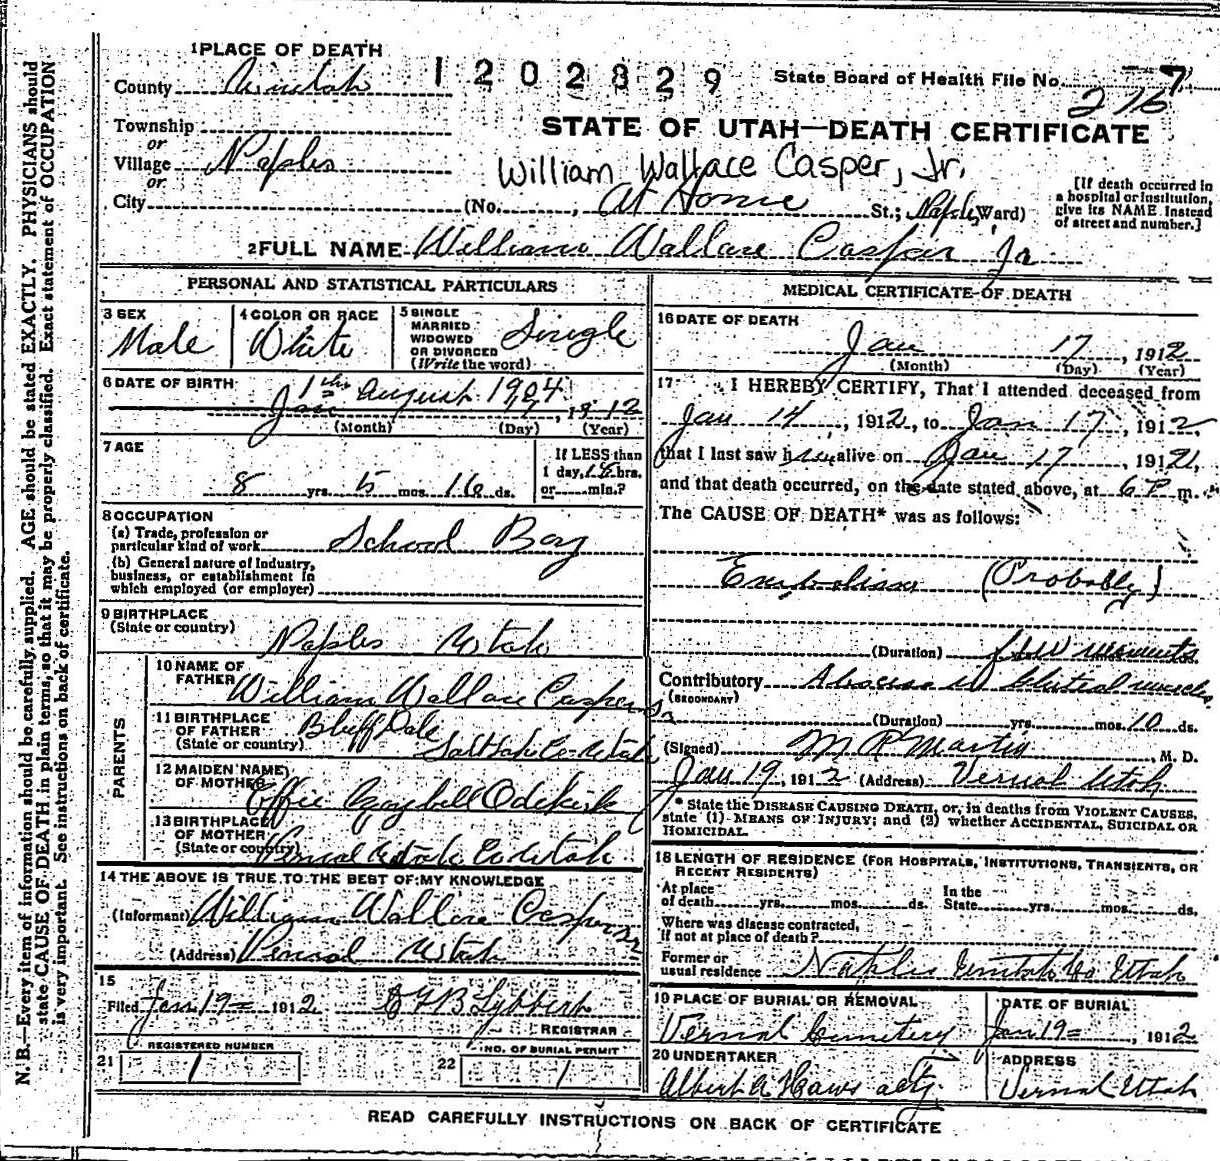 1 PLACE OF DEATH
1202829
State Board of Health File No. 7
276
County Uintah
STATE OF UTAH—DEATH CERTIFICATE
Township
or
Village Naples
William Wallace Casper, Jr.
or
City (No. , At Home St.; Naples Ward)
[If death occurred in
a hospital or institution,
give its NAME instead
of street and number.]
2 FULL NAME William Wallace Casper Jr
PERSONAL AND STATISTICAL PARTICULARS
3 SEX
Male
4 COLOR OR RACE
White
5 SINGLE
MARRIED
WIDOWED
OR DIVORCED
(Write the word)
Single
6 DATE OF BIRTH
1st August 1904
Jan 17, 1912
(Month) (Day) (Year)
7 AGE
8 yrs. 5 mos. 16 ds.
If LESS than
1 day, 18 hrs.
or min.?
8 OCCUPATION
(a) Trade, profession or
particular kind of work School Boy
(b) General nature of Industry,
business, or establishment in
which employed (or employer)
9 BIRTHPLACE
(State or country)
Naples Utah
PARENTS
10 NAME OF
FATHER William Wallace Casper Sr
11 BIRTHPLACE
OF FATHER
(State or country)
Bluff Dale
Salt Lake Co Utah
12 MAIDEN NAME
OF MOTHER Effie Maybell Odekirk
13 BIRTHPLACE
OF MOTHER
(State or country) Vernal Utah Co Utah
14 THE ABOVE IS TRUE TO THE BEST OF MY KNOWLEDGE
(Informant) William Wallace Casper Sr
(Address) Vernal Utah
15
Filed Jan 19 1912 Lybbert
REGISTRAR
REGISTERED NUMBER
21 1
NO. OF BURIAL PERMIT
22 1
MEDICAL CERTIFICATE OF DEATH
16 DATE OF DEATH
Jan 17, 1912
(Month) (Day) (Year)
17 I HEREBY CERTIFY, That I attended deceased from
Jan 14, 1912, to Jan 17, 1912,
that I last saw him alive on Jan 17, 1912,
and that death occurred, on the date stated above, at 6 P m.
The CAUSE OF DEATH* was as follows:
Embolism (Probably)
(Duration) few moments
Contributory Abscess in Gluteal muscles
(SECONDARY)
(Duration) yrs. mos. 10 ds.
(Signed) M R Martin, M. D.
Jan 19, 1912 (Address) Vernal Utah
* State the DISEASE CAUSING DEATH, or, in deaths from VIOLENT CAUSES,
state (1) MEANS OF INJURY; and (2) whether ACCIDENTAL, SUICIDAL OR
HOMICIDAL.
18 LENGTH OF RESIDENCE (FOR HOSPITALS, INSTITUTIONS, TRANSIENTS, OR
RECENT RESIDENTS)
At place
of death yrs. mos. ds.
In the
State yrs. mos. ds.
Where was disease contracted,
if not at place of death?
Former or
usual residence Naples Uintah Co Utah
19 PLACE OF BURIAL OR REMOVAL
Vernal Cemetery
DATE OF BURIAL
Jan 19, 1912
20 UNDERTAKER
Albert A Haws actg.
ADDRESS
Vernal Utah
READ CAREFULLY INSTRUCTIONS ON BACK OF CERTIFICATE
N. B.—Every item of information should be carefully supplied. AGE should be stated EXACTLY. PHYSICIANS should
state CAUSE OF DEATH in plain terms, so that it may be properly classified. Exact statement of OCCUPATION
is very important. See instructions on back of certificate.